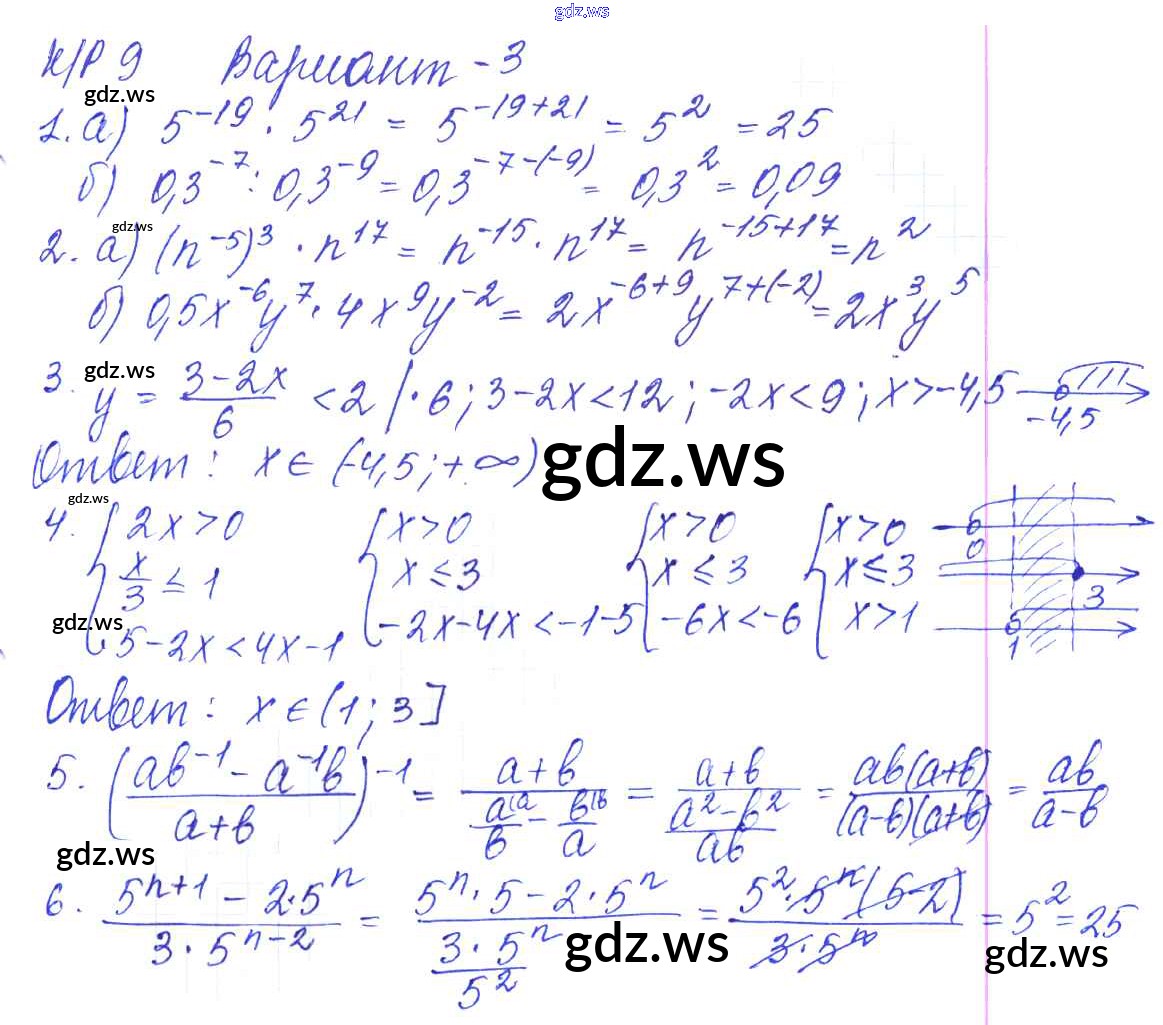 gdz.ws
К/Р 9 Вариант - 3
gdz.ws
1. а) 5^{-19} · 5^{21} = 5^{-19+21} = 5^2 = 25
б) 0,3^{-7} : 0,3^{-9} = 0,3^{-7-(-9)} = 0,3^2 = 0,09
gdz.ws
2. а) (n^{-5})^3 · n^{17} = n^{-15} · n^{17} = n^{-15+17} = n^2
б) 0,5x^{-6}y^7 · 4x^9y^{-2} = 2x^{-6+9}y^{7+(-2)} = 2x^3y^5
gdz.ws
3. y = \frac{3-2x}{6} < 2 | · 6 ; 3-2x<12 ; -2x<9 ; x>-4,5 -4,5
Ответ : x ∈ (-4,5 ; +∞) gdz.ws
gdz.ws
4. { 2x>0 { x>0 { x>0 { x>0 0
\frac{x}{3} ≤ 1 x ≤ 3 x ≤ 3 x ≤ 3 3
gdz.ws
5-2x<4x-1 -2x-4x<-1-5 -6x<-6 x>1 1
Ответ : x ∈ (1 ; 3]
5. (\frac{ab^{-1} - a^{-1}b}{a+b})^{-1} = \frac{a+b}{\frac{a^{(a}}{b} - \frac{b^{(b}}{a}} = \frac{a+b}{\frac{a^2-b^2}{ab}} = \frac{ab(a+b)}{(a-b)(a+b)} = \frac{ab}{a-b}
gdz.ws
6. \frac{5^{n+1} - 2·5^n}{3·5^{n-2}} = \frac{5^n·5 - 2·5^n}{\frac{3·5^n}{5^2}} = \frac{5^2·5^n(5-2)}{3·5^n} = 5^2 = 25
gdz.ws
gdz.ws